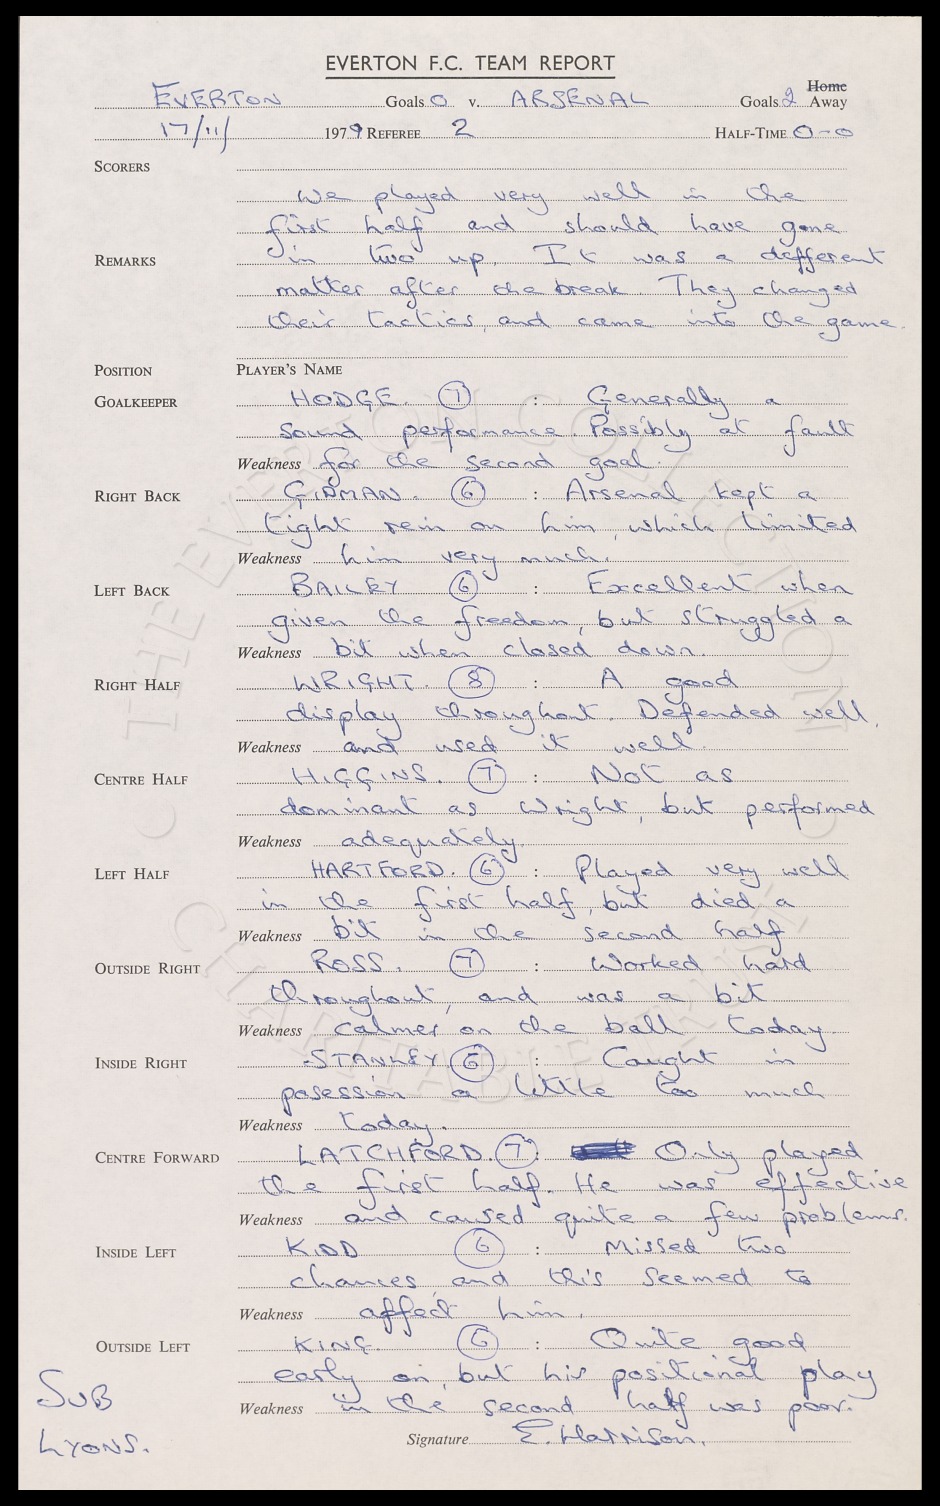 EVERTON F.C. TEAM REPORT
Home
EVERTON Goals 0 v. ARSENAL Goals 2 Away
17/11/ 1979 REFEREE 2 HALF-TIME 0-0
SCORERS
We played very well in the
first half and should have gone
REMARKS in two up. It was a defferent
matter after the break. They changed
their tactics, and came into the game.
POSITION PLAYER'S NAME
GOALKEEPER HODGE. 7 : Generally a
sound performance. Possibly at fault
Weakness for the second goal.
RIGHT BACK GIDMAN. 6 : Arsenal kept a
tight rein on him, which limited
Weakness him very much.
LEFT BACK BAILEY 6 : Excellent when
given the freedom, but struggled a
Weakness bit when closed down.
RIGHT HALF WRIGHT. 8 : A good
display throughout. Defended well,
Weakness and used it well.
CENTRE HALF HIGGINS. 7 : Not as
dominant as Wright, but performed
Weakness adequately.
LEFT HALF HARTFORD. 6 : Played very well
in the first half, but died a
Weakness bit in the second half
OUTSIDE RIGHT ROSS. 7 : Worked hard
throughout, and was a bit
Weakness calmer on the ball today.
INSIDE RIGHT STANLEY 6 : Caught in
posession a little too much
Weakness today.
CENTRE FORWARD LATCHFORD. 7 : Only played
the first half. He was effective
Weakness and caused quite a few problems.
INSIDE LEFT KIDD 6 : Missed two
chances, and this seemed to
Weakness affect him.
OUTSIDE LEFT KING. 6 : Quite good
early on, but his positional play
Weakness in the second half was poor.
SUB
LYONS.
Signature E. Harrison.
THE EVERTON COLLECTION
CHARITABLE TRUST